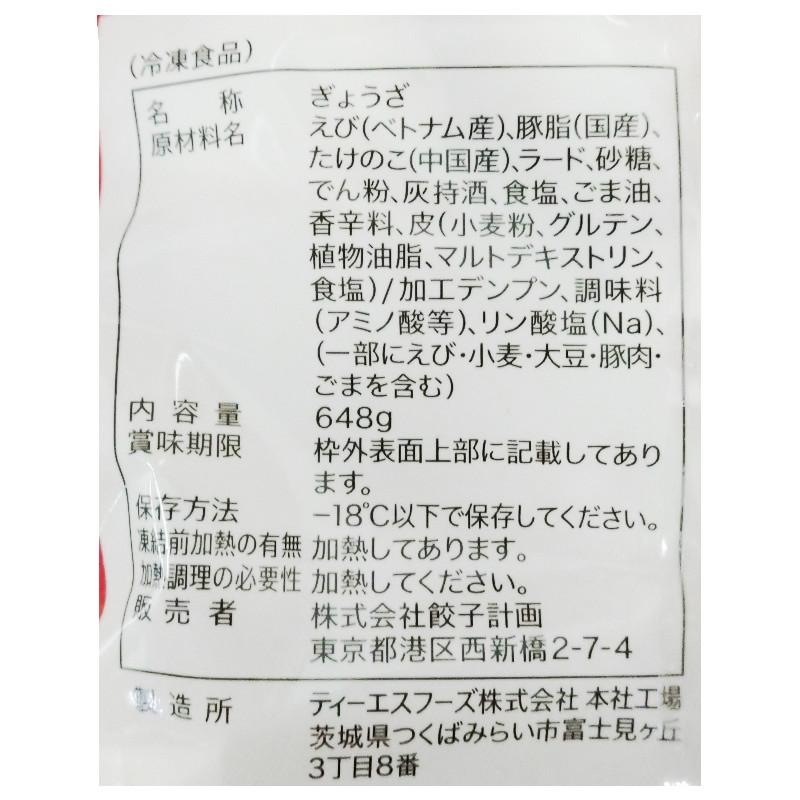 (冷凍食品)
名称 ぎょうざ
原材料名 えび(ベトナム産)、豚脂(国産)、
たけのこ(中国産)、ラード、砂糖、
でん粉、灰持酒、食塩、ごま油、
香辛料、皮(小麦粉、グルテン、
植物油脂、マルトデキストリン、
食塩)/加工デンプン、調味料
(アミノ酸等)、リン酸塩(Na)、
(一部にえび・小麦・大豆・豚肉・
ごまを含む)
内容量 648g
賞味期限 枠外表面上部に記載してあり
ます。
保存方法 -18℃以下で保存してください。
凍結前加熱の有無 加熱してあります。
加熱調理の必要性 加熱してください。
販売者 株式会社餃子計画
東京都港区西新橋2-7-4
製造所 ティーエスフーズ株式会社 本社工場
茨城県つくばみらい市富士見ヶ丘
3丁目8番